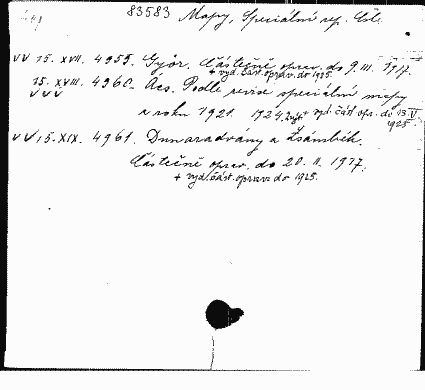 83583 Mapy, Speciální rep. Čsl.
VV 15. XVII. 4959. Györ. Částečně oprav. do 9. III. 1917.
+ vyd. část. oprav. do 1925.
15. XVIII. 4960. Ács. Podle revise speciální mapy
VVV
z roku 1921. 1924 + vyd. část. opr. do 13. V.
1925.
VV 15. XIX. 4961. Dunaradvány a Zsámbék.
Částečně oprav. do 20. II. 1917.
+ vyd. část. oprav. do 1925.